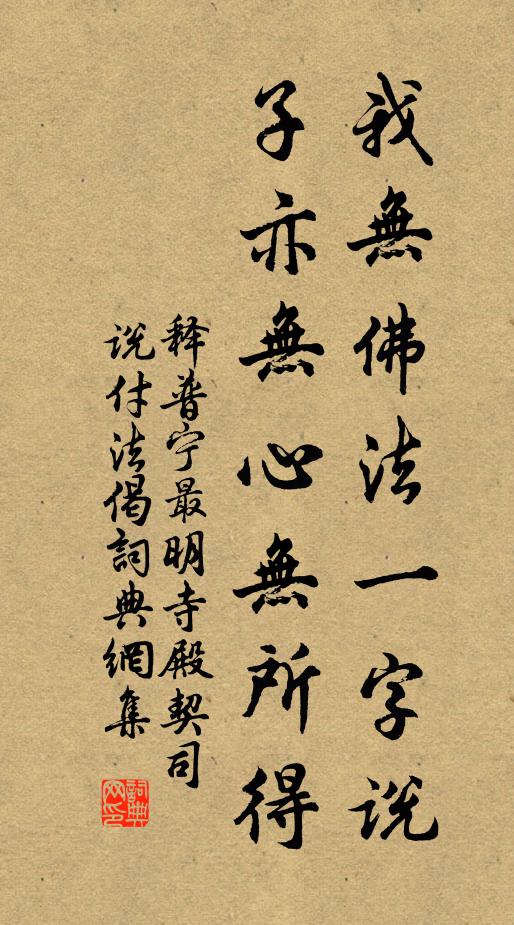 我無佛法一字說
子亦無心無所得
释普宁最明寺殿契司
说付法偈詞典網集
詞典网印